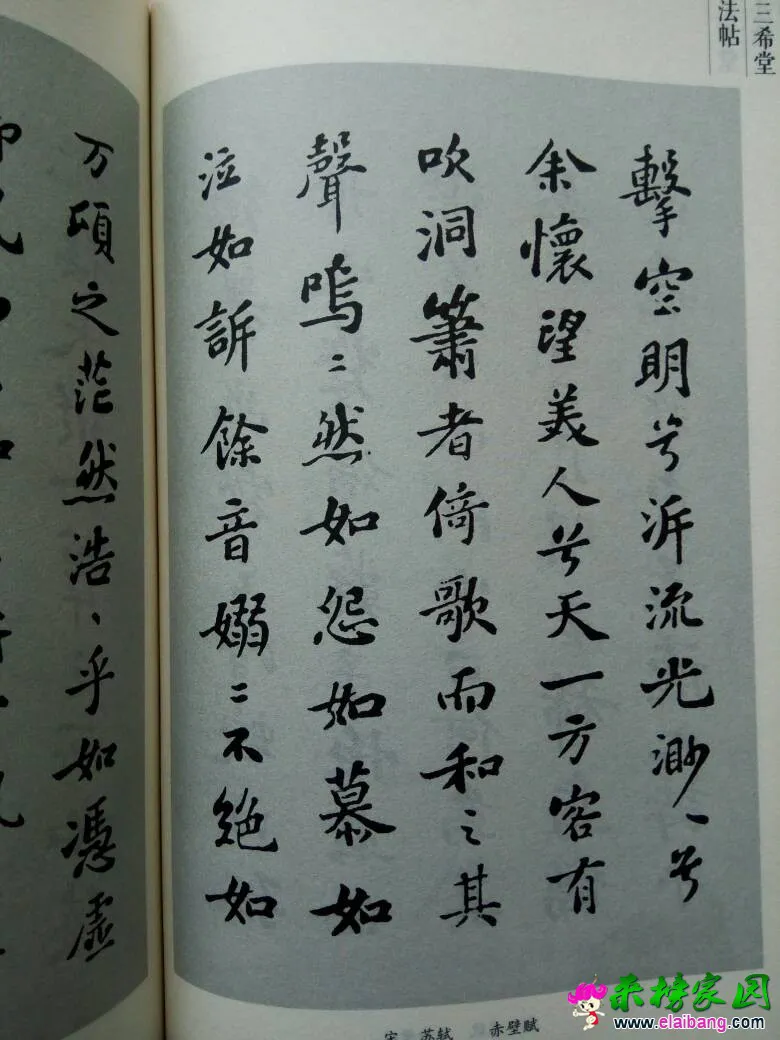 三希堂
法帖
擊空明兮泝流光渺丶兮
余懷望美人兮天一方客有
吹洞簫者倚歌而和之其
聲嗚〻然如怨如慕如
泣如訴餘音嫋〻不絶如
万頃之茫然浩丶乎如憑虛
宋 苏轼 赤壁赋
来榜家园
www.elaibang.com